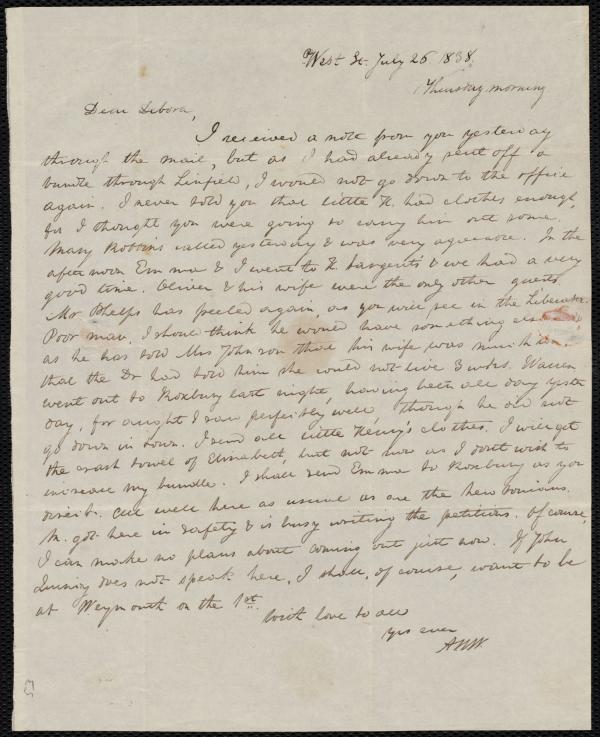 West St. July 26 1838.
Thursday morning
Dear Debora,
I received a note from you yesterday
through the mail, but as I had already sent off a
bundle through Linfield, I would not go down to the office
again. I never told you that little H. had clothes enough,
for I thought you were going to carry him out some.
Mary Robbins called yesterday & was very agreeable. In the
afternoon Emma & I went to H. Sargent's & we had a very
good time. Oliver & his wife were the only other guests.
Mr Phelps has peeled again, as you will see in the Liberator.
Poor man, I should think he would have something else
as he has told Mrs Johnson that his wife was much
that the Dr had told him she could not live 3 wks. Warren
went out to Roxbury last night, having been all day yester
day, for aught I saw perfectly well, though he did not
go down in town. I send all little Henry's clothes. I will get
the crash towel of Elizabeth, but not now as I don't wish to
increase my bundle. I shall send Emma to Roxbury as you
direct. All well here as usual as are the
M. got here in safety & is busy writing the petitions. Of course,
I can make no plans about coming out just now. If John
Quincy does not speak here, I shall, of course, want to be
at Weymouth on the 1st.
With love to all
yrs ever
AWW.